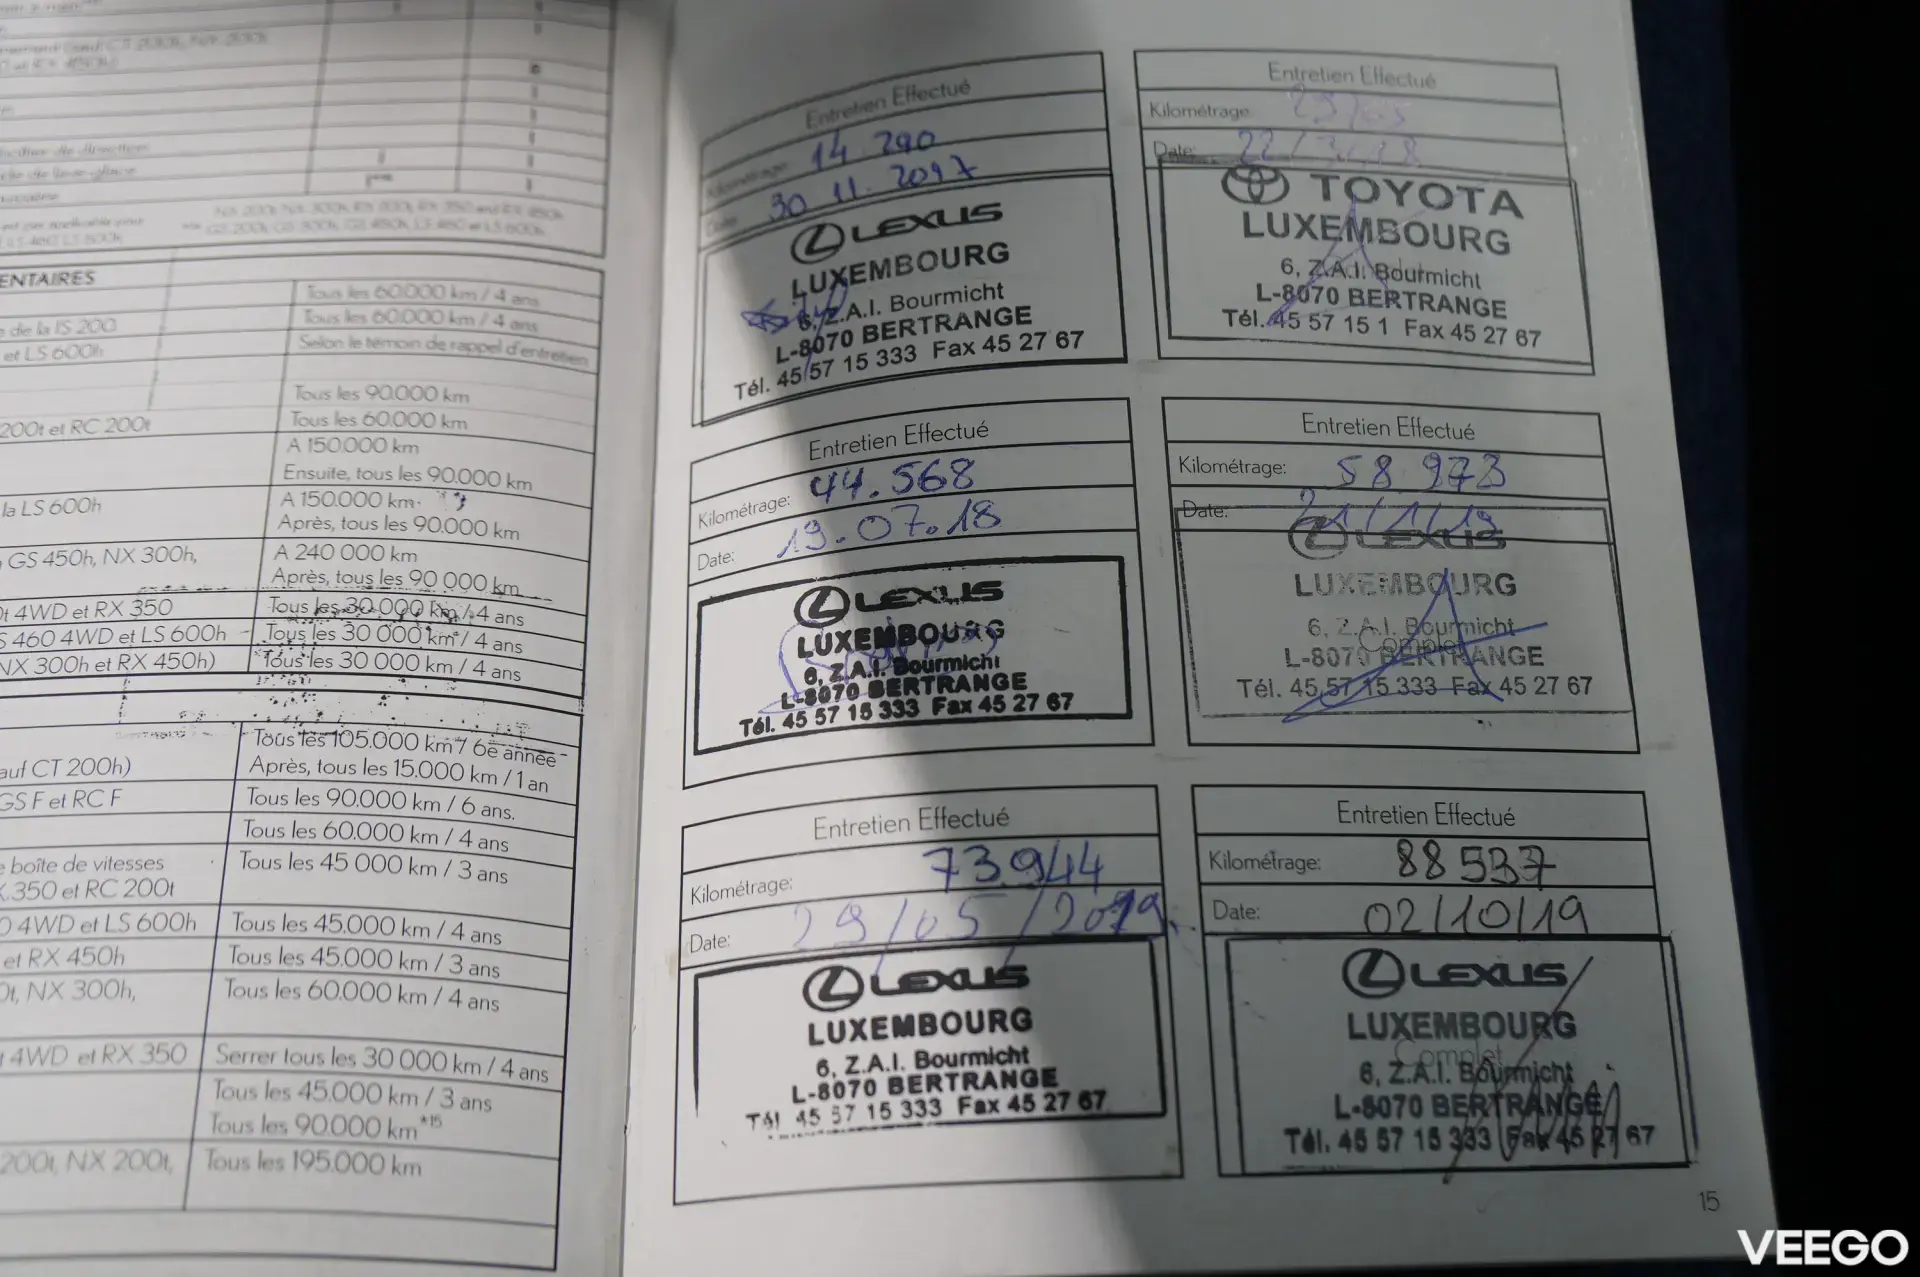 ENTAIRES
Tous les 60.000 km / 4 ans
de la IS 200 Tous les 60.000 km / 4 ans
et LS 600h Selon le témoin de rappel d'entretien
Tous les 90.000 km
200t et RC 200t Tous les 60.000 km
A 150.000 km
Ensuite, tous les 90.000 km
la LS 600h A 150.000 km
Après, tous les 90.000 km
GS 450h, NX 300h, A 240 000 km
Après, tous les 90 000 km
0t 4WD et RX 350 Tous les 30 000 km / 4 ans
S 460 4WD et LS 600h Tous les 30 000 km* / 4 ans
NX 300h et RX 450h) Tous les 30 000 km / 4 ans
Tous les 105.000 km / 6e année
auf CT 200h) Après, tous les 15.000 km / 1 an
GS F et RC F Tous les 90.000 km / 6 ans.
Tous les 60.000 km / 4 ans
e boîte de vitesses Tous les 45 000 km / 3 ans
X 350 et RC 200t
0 4WD et LS 600h Tous les 45.000 km / 4 ans
et RX 450h Tous les 45.000 km / 3 ans
0t, NX 300h, Tous les 60.000 km / 4 ans
t 4WD et RX 350 Serrer tous les 30 000 km / 4 ans
Tous les 45.000 km / 3 ans
Tous les 90.000 km*15
200t, NX 200t, Tous les 195.000 km
Entretien Effectué
Kilométrage: 14 290
30 11. 2017
LEXUS
LUXEMBOURG
6, Z.A.I. Bourmicht
L-8070 BERTRANGE
Tél. 45 57 15 333 Fax 45 27 67
Entretien Effectué
Kilométrage:
Date:
TOYOTA
LUXEMBOURG
6, Z.A.I. Bourmicht
L-8070 BERTRANGE
Tél. 45 57 15 1 Fax 45 27 67
Entretien Effectué
Kilométrage: 44.568
Date: 19.07.18
LEXUS
LUXEMBOURG
6, Z.A.I. Bourmicht
L-8070 BERTRANGE
Tél. 45 57 15 333 Fax 45 27 67
Entretien Effectué
Kilométrage: 58 973
Date: 21/1/19
LEXUS
LUXEMBOURG
6, Z.A.I. Bourmicht
Complet
L-8070 BERTRANGE
Tél. 45 57 15 333 Fax 45 27 67
Entretien Effectué
Kilométrage: 73.944
Date: 29/05/2019
LEXUS
LUXEMBOURG
6, Z.A.I. Bourmicht
L-8070 BERTRANGE
Tél 45 57 15 333 Fax 45 27 67
Entretien Effectué
Kilométrage: 88 537
Date: 02/10/19
LEXUS
LUXEMBOURG
Complet
6, Z.A.I. Bourmicht
L-8070 BERTRANGE
Tél. 45 57 15 333 Fax 45 27 67
15
VEEGO